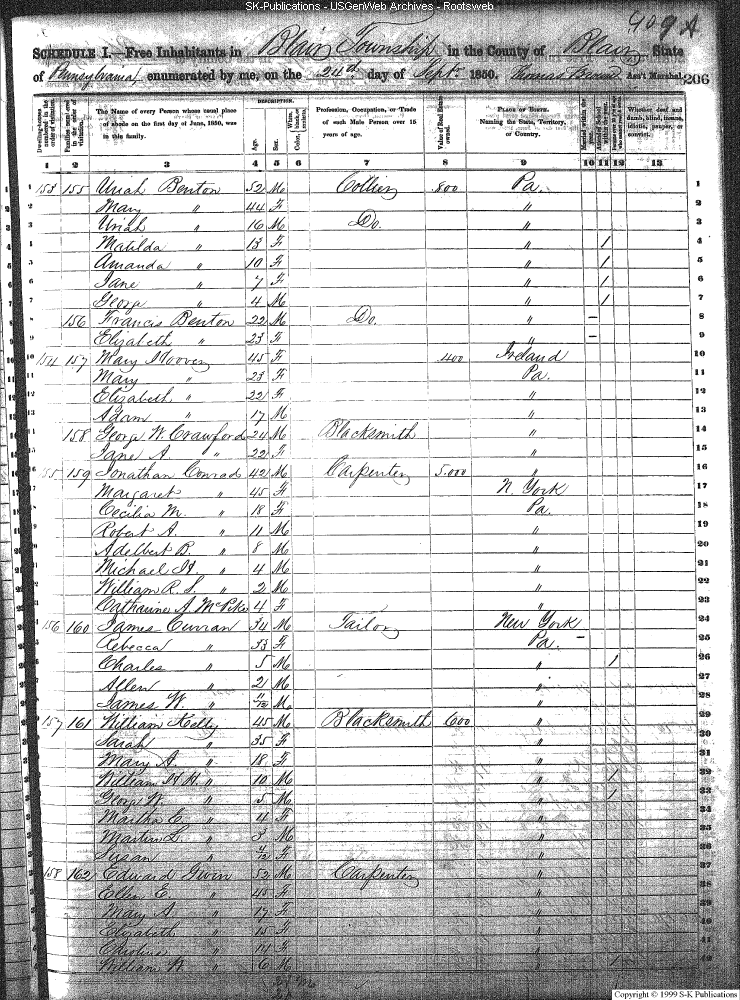 SK-Publications - USGenWeb Archives - Rootsweb
409 A
SCHEDULE I.—Free Inhabitants in Blair Township in the County of Blair State
of Pennsylvania, enumerated by me, on the 24th day of Sept. 1850. Thomas Ass't Marshal. 206
Dwelling-houses numbered in the order of visitation. Families numbered in the order of visitation. The Name of every Person whose usual place of abode on the first day of June, 1850, was in this family. DESCRIPTION. Age. Sex. Color, Profession, Occupation, or Trade of each Male Person over 15 years of age. Value of Real Estate owned. PLACE OF BIRTH. Naming the State, Territory, or Country. Married within the year. Attended School within the year. Whether deaf and dumb, blind, insane, idiotic, pauper, or convict.
1 2 3 4 5 6 7 8 9 10 11 12 13
1 153 155 Uriah Benton 52 M Collier 800 Pa. 1
2 Mary " 44 F " 2
3 Uriah " 16 M Do. " 3
4 Matilda " 13 F " / 4
5 Amanda " 10 F " / 5
6 Jane " 7 F " / 6
7 Georg " 4 M " / 7
8 156 Francis Benton 22 M Do. " – 8
9 Elizabeth " 23 F " – 9
10 154 157 Mary Hoover 45 F 400 Ireland 10
11 Mary " 23 F Pa. 11
12 Elizabeth " 22 F " 12
13 Adam " 17 M " 13
14 158 Georg W. Crawford 24 M Blacksmith " 14
15 Jane A " 22 F " 15
16 155 159 Jonathan Conrad 42 M Carpenter 5.000 " 16
17 Margaret " 45 F N. York 17
18 Cecilia M. " 18 F Pa. 18
19 Robert A. " 11 M " 19
20 Adelbert B. " 8 M " 20
21 Michael H. " 4 M " 21
22 William R. S. " 2 M " 22
23 Catharine A McPike 4 F " 23
24 156 160 James Curran 34 M Tailor New York 24
25 Rebecca " 33 F Pa. – 25
26 Charles " 5 M " / 26
27 Allen " 2 M " 27
28 James W. " 11/12 M " 28
29 157 161 William Kelly 45 M Blacksmith 600 " 29
30 Sarah " 35 F " 30
31 Mary A. " 18 F " 31
32 William H H. " 10 M " / 32
33 Georg W. " 5 M " / 33
34 Martha C. " 4 F " 34
35 Martin L. " 3 M " 35
36 Susan " 4/12 F " 36
37 158 162 Edward Givin 52 M Carpenter " 37
38 Ellen E. " F " 38
39 Mary A " 17 F " 39
40 Elizabeth " 15 F " 40
41 " F " 41
42 William W " 6 M " / 42
Copyright © 1999 S-K Publications